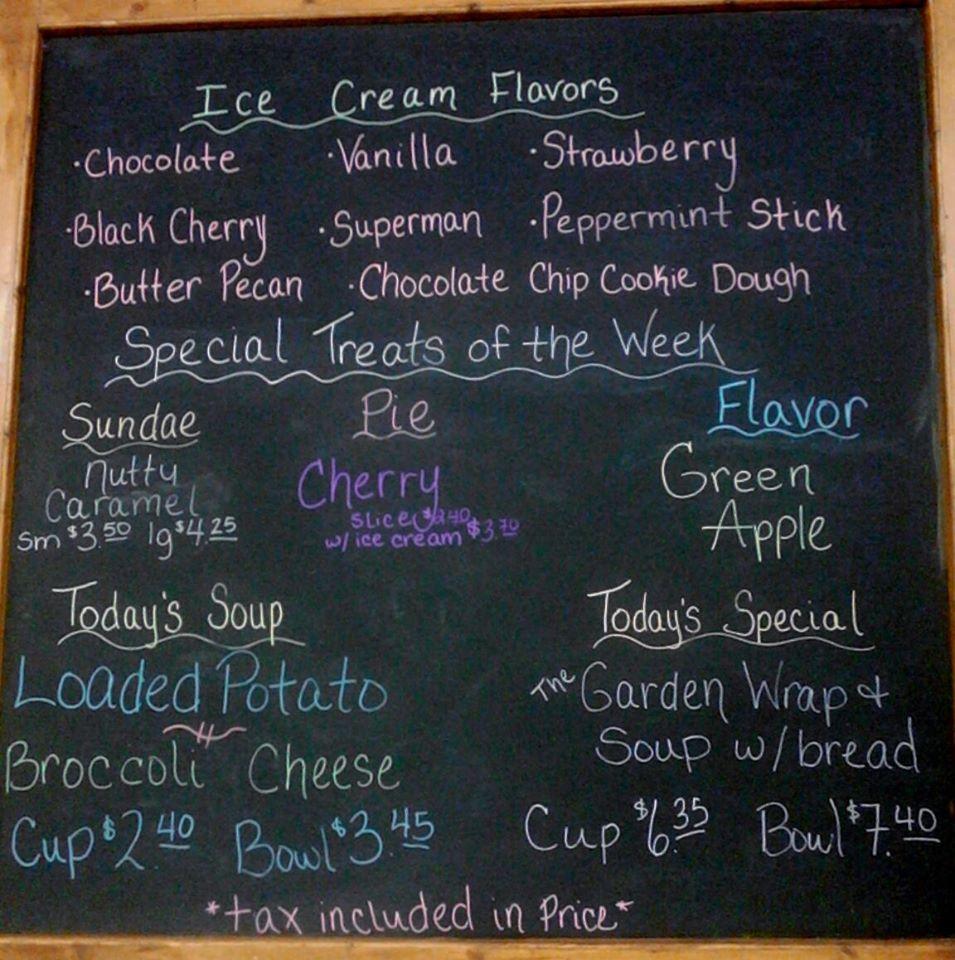 Ice Cream Flavors
·Chocolate ·Vanilla ·Strawberry
·Black Cherry ·Superman ·Peppermint Stick
·Butter Pecan ·Chocolate Chip Cookie Dough
Special Treats of the Week
Sundae
Nutty
Caramel
Sm $3.50 lg $4.25
Pie
Cherry
slice $2.40
w/ ice cream $3.70
Flavor
Green
Apple
Today's Soup
Loaded Potato
Broccoli Cheese
Cup $2.40 Bowl $3.45
Today's Special
The Garden Wrap &
Soup w/ bread
Cup $6.35 Bowl $7.40
*tax included in Price*